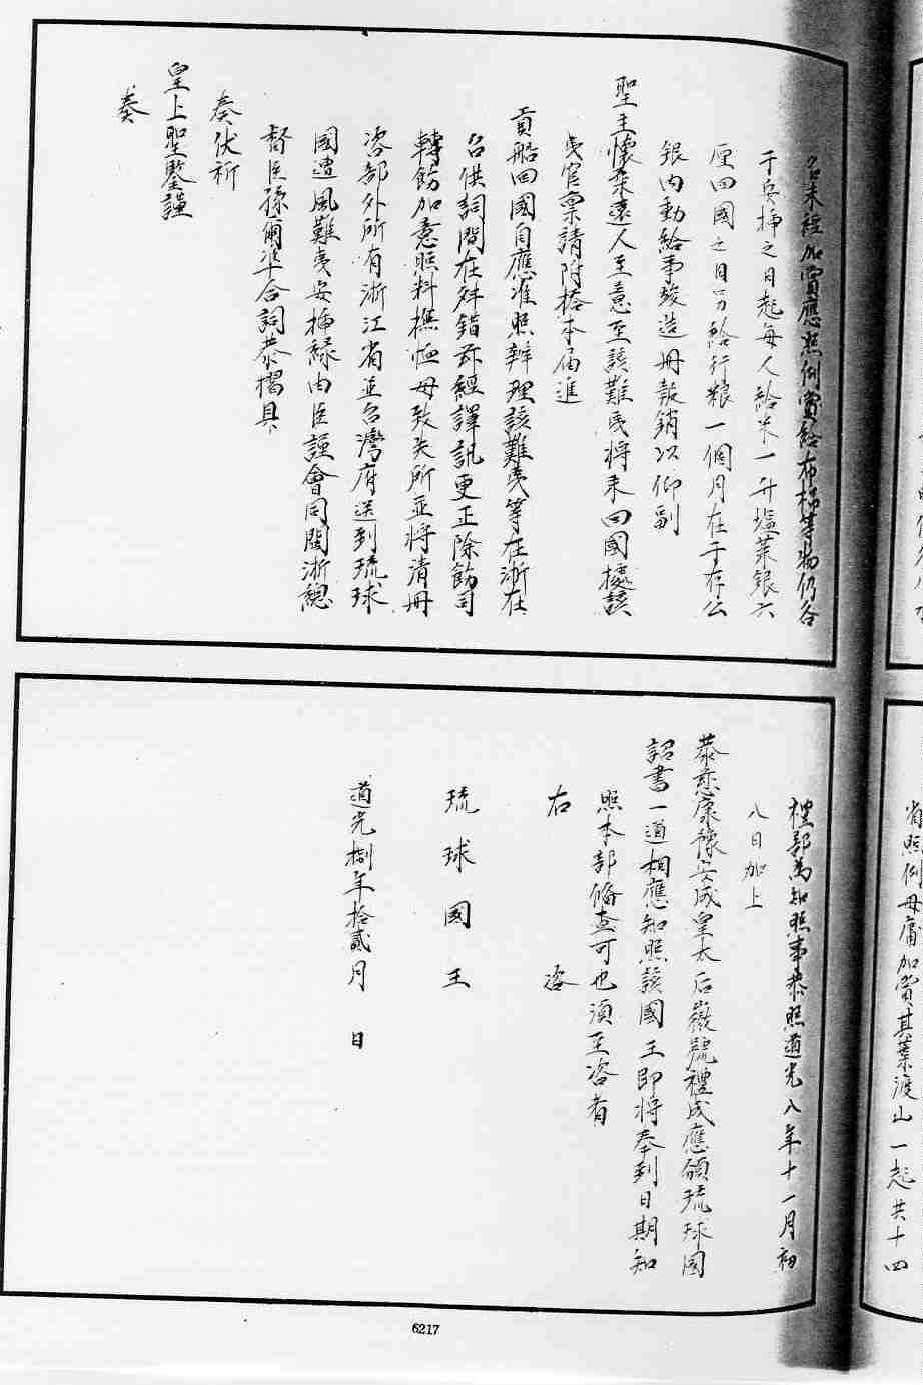 名未經加賞應照例賞給布棉等物仍各
于安揷之日起每人給米一升塩菜銀六
厘回國之日另給行粮一個月在于存公
銀内動給事竣造册報銷以仰副
聖主懷柔遠人至意至該難民將來回國據該
夷官禀請附搭本届進
貢船回國自應准照辦理該難夷等在浙在
台供詞間有舛錯亦經譯訊更正除飭司
轉飭加意照料撫恤毋致失所並將清册
咨部外所有浙江省並台灣府送到琉球
國遭風難夷安揷緣由臣謹會同閩浙總
督臣孫爾準合詞恭摺具
奏伏祈
皇上聖鑒謹
奏
禮部為知照事恭照道光八年十一月初
八日加上
恭慈康豫安成皇太后徽號禮成應頒琉球國
詔書一道相應知照該國王即將奉到日期知
照本部俻查可也須至咨者
右咨
琉球國王
道光捌年拾貳月 日
省照例毋庸加賞其葉渡山一起共十四
6217